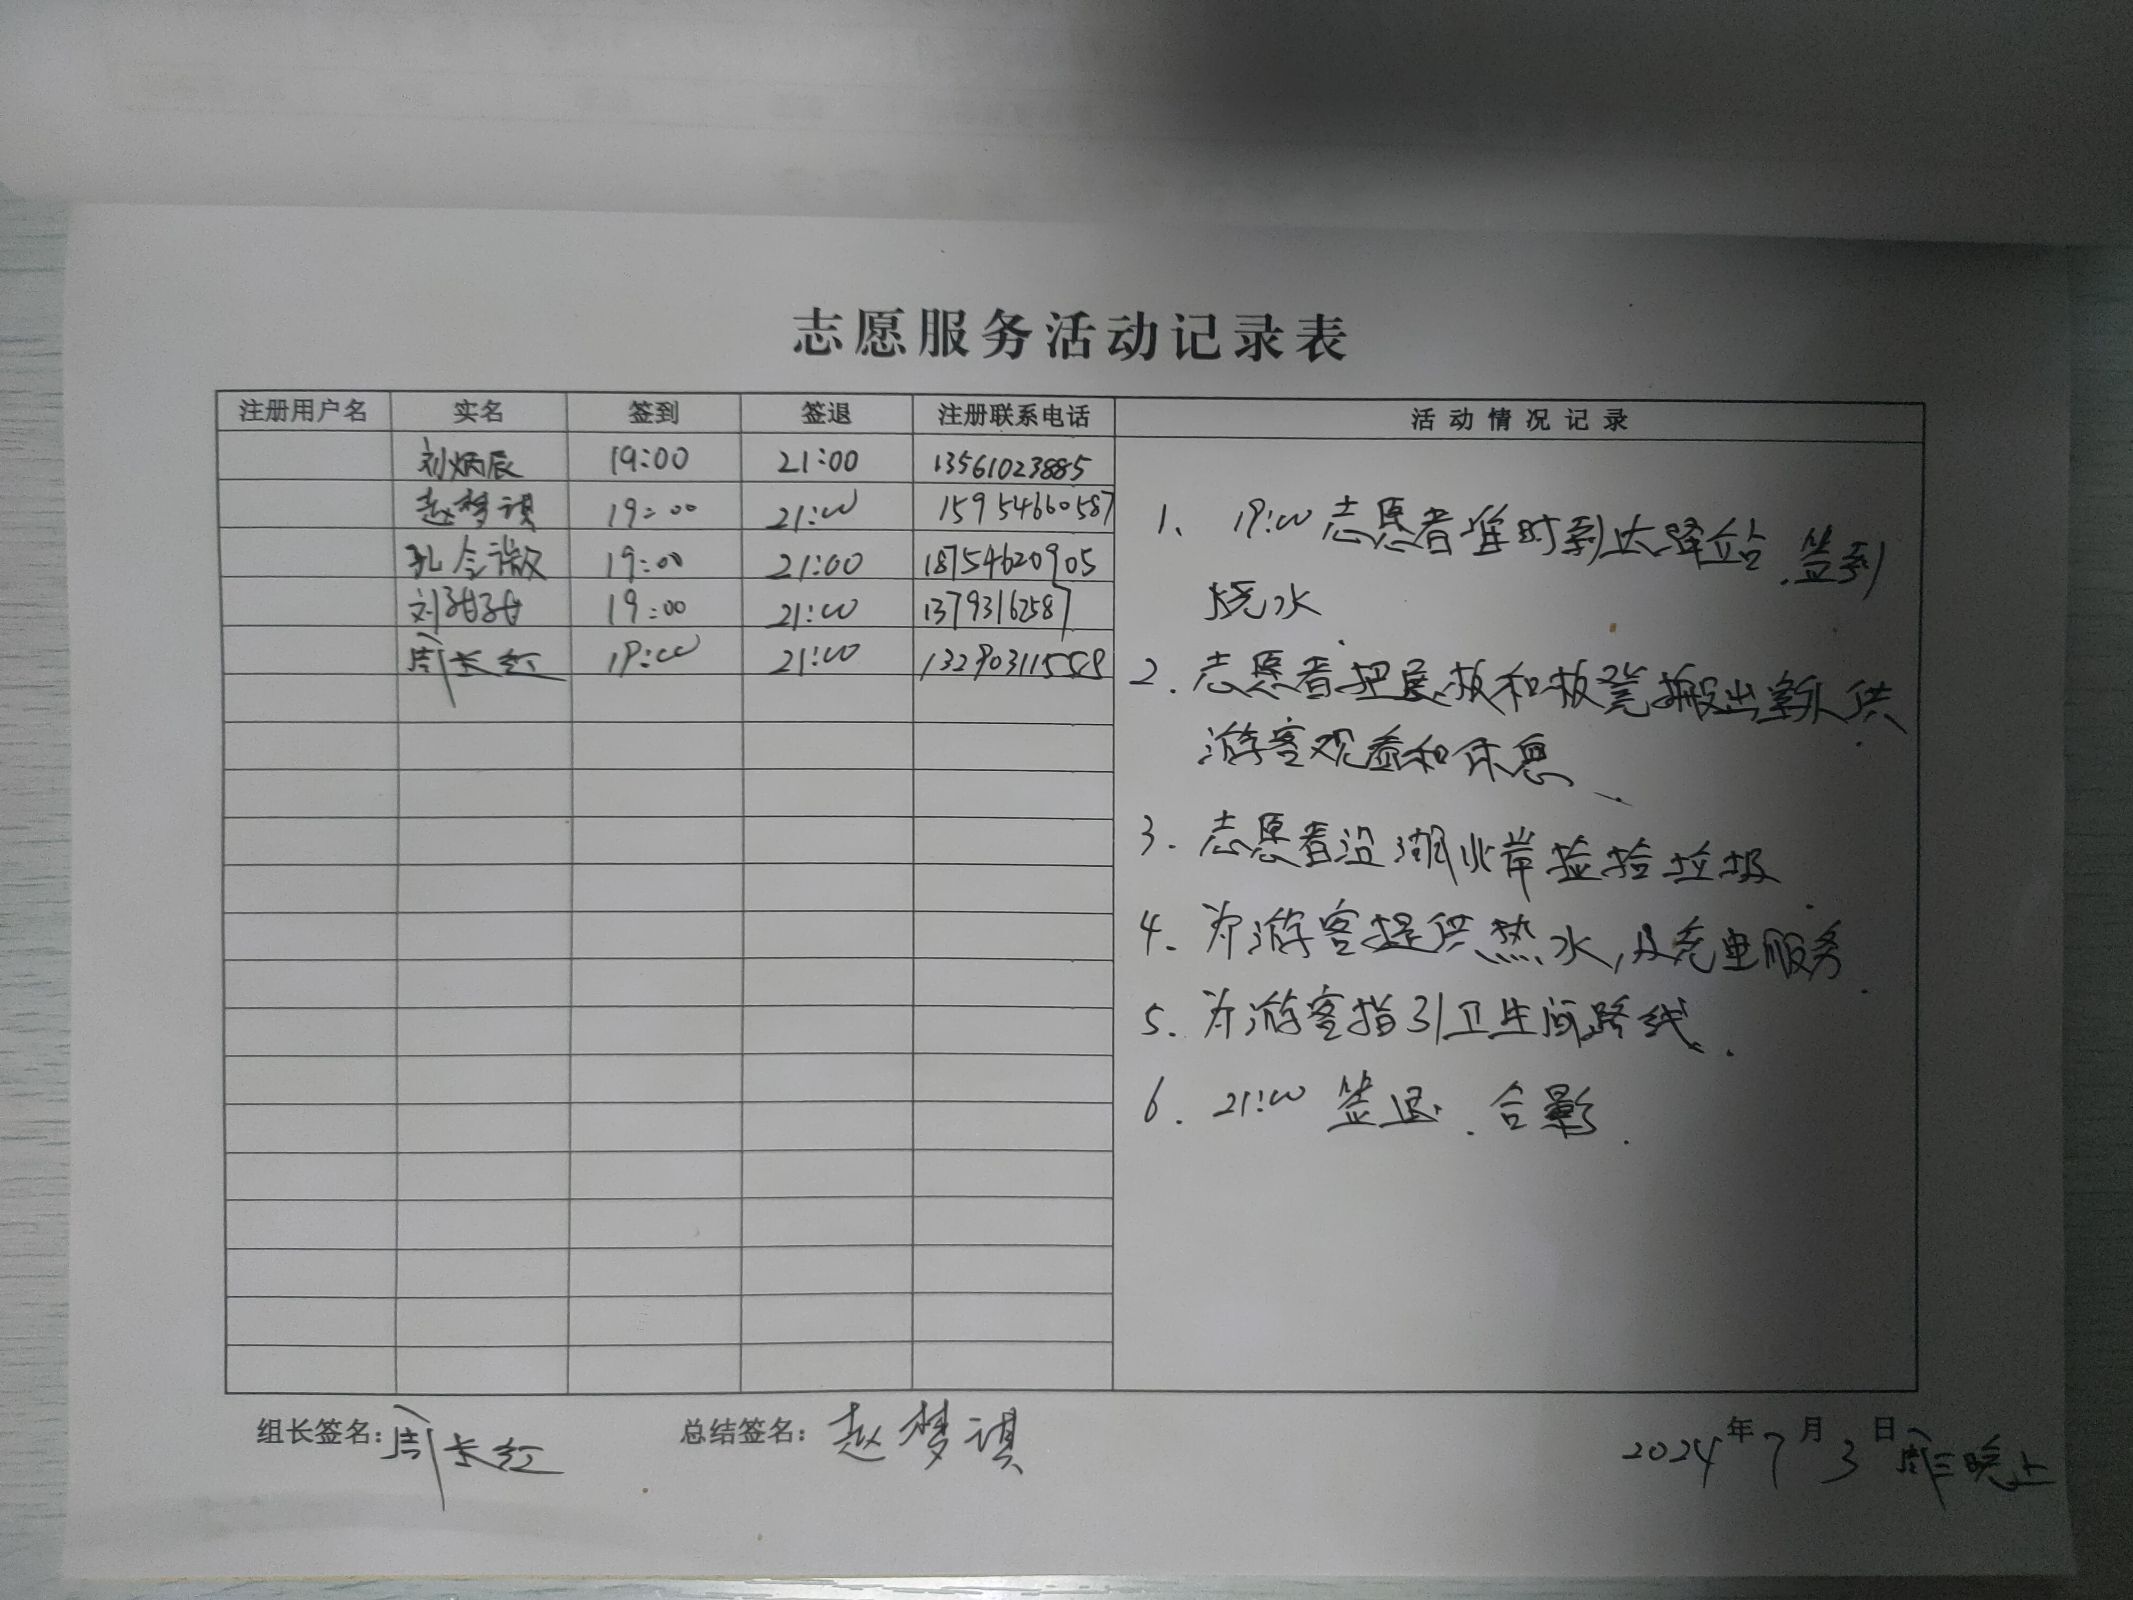 志愿服务活动记录表
注册用户名 实名 签到 签退 注册联系电话 活动情况记录
刘炳辰 19:00 21:00 13561023885
赵梦琪 19:00 21:00 15954660587
孔令 19:00 21:00 18754620905
刘甜甜 19:00 21:00 13793162587
周长红 19:00 21:00 13290311558
1、19:00志愿者准时到达驿站.签到
烧水.
2.志愿者把展板和板凳搬出室外供
游客观查和休息、
3.志愿者沿湖北岸捡拾垃圾.
4.为游客提供热水,及充电服务.
5.为游客指引卫生间路线.
6.21:00签退.合影.
组长签名:周长红 总结签名:赵梦琪 2024年7月3日周三晚上